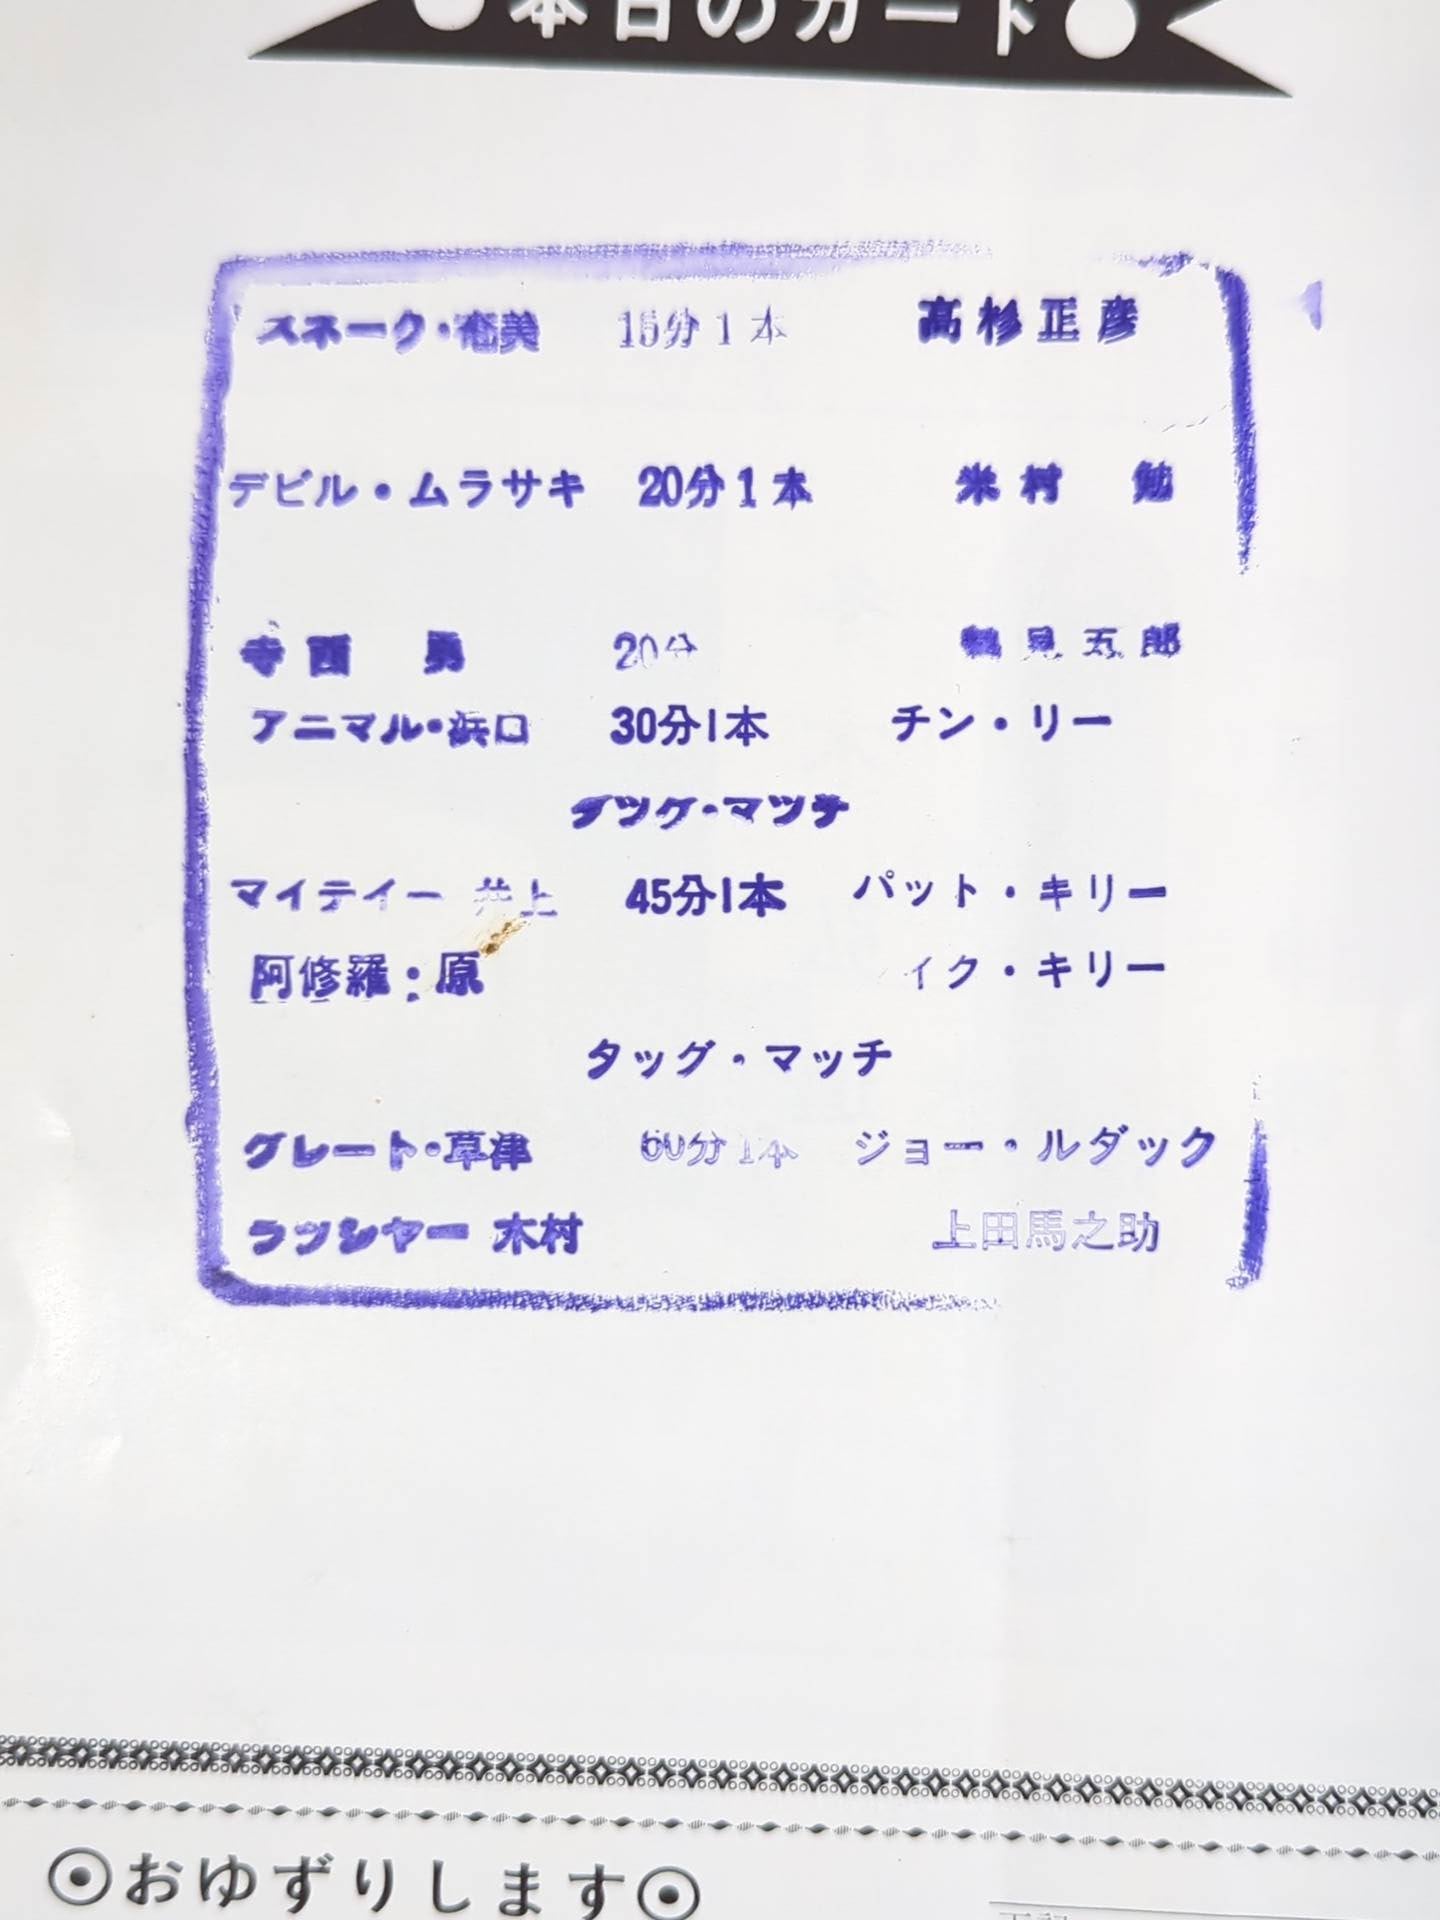 ●本日のカード●
スネーク・奄美 15分1本 高杉正彦
デビル・ムラサキ 20分1本 米村 勉
寺西 勇 20分 鶴見五郎
アニマル・浜口 30分1本 チン・リー
タッグ・マッチ
マイテイー 井上 45分1本 パット・キリー
阿修羅・原 イク・キリー
タッグ・マッチ
グレート・草津 60分1本 ジョー・ルダック
ラッシャー 木村 上田馬之助
⦿おゆずりします⦿